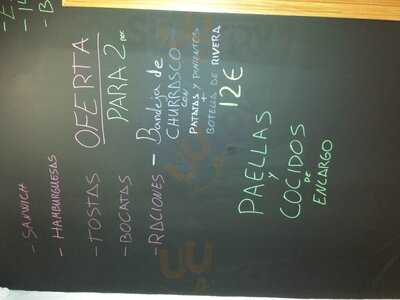 - SANWICH
- HAMBURGUESAS
- TOSTAS
- BOCATAS
- RACIONES
OFERTA
PARA 2
- Bandeja de
CHURRASCO
CON
PATATAS Y PIMIENTOS
+
BOTELLA DE RIVERA
12€
PAELLAS
Y
COCIDOS
DE
ENCARGO